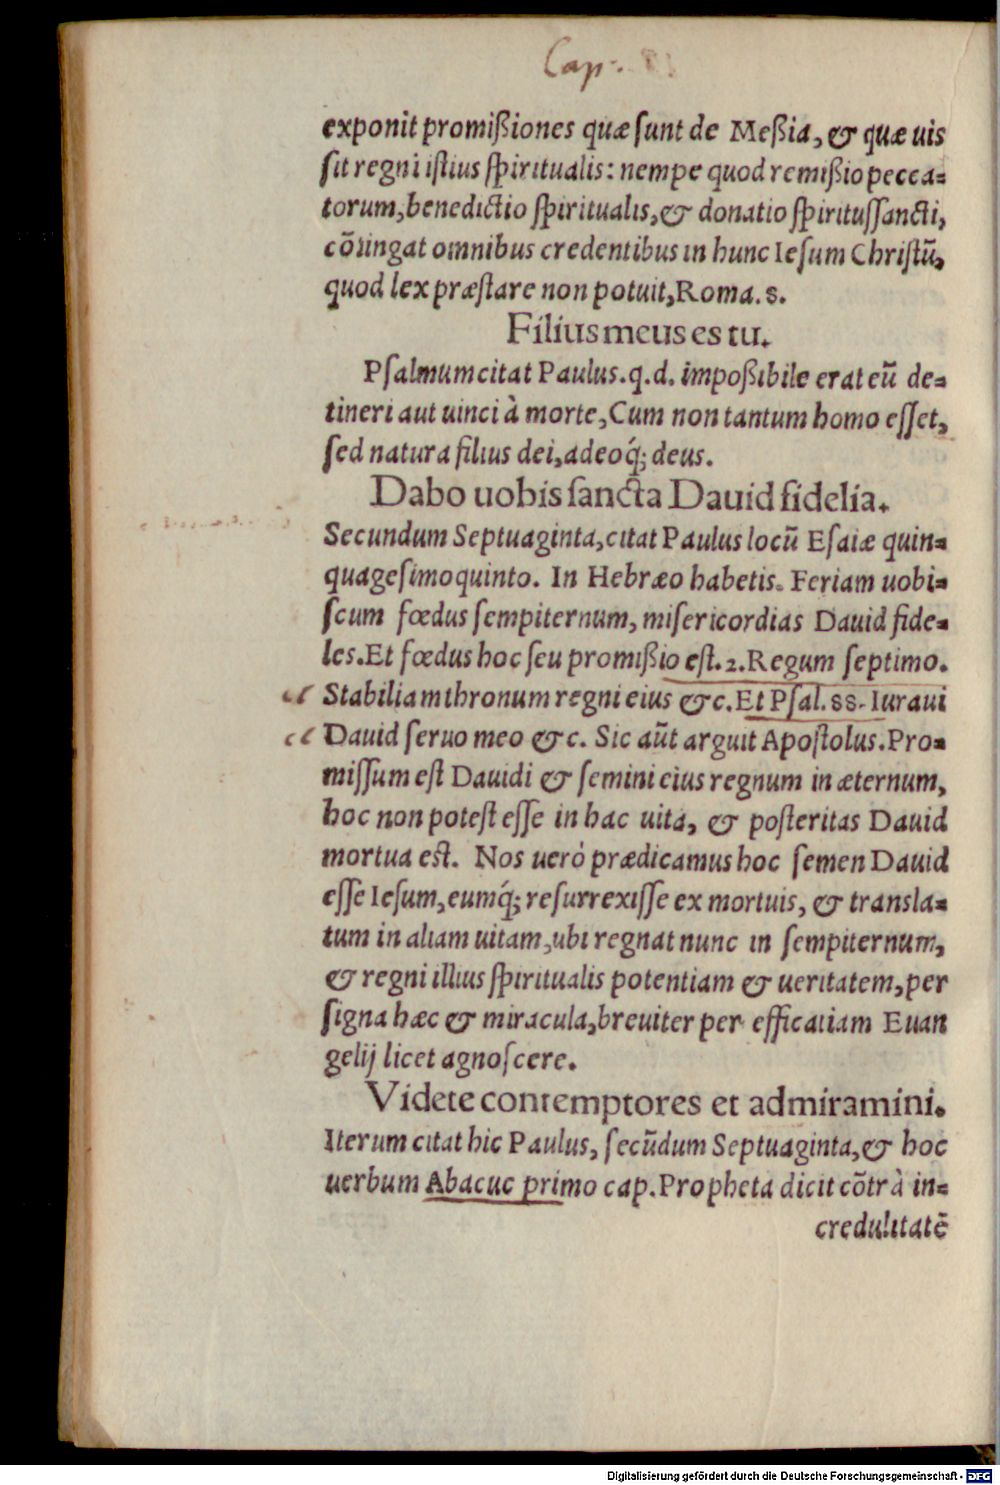 Cap.
exponit promißiones quæ ſunt de Meßia, & quæ uis
ſit regni iſtius ſpiritualis: nempe quod remißio pecca-
torum, benedictio ſpiritualis, & donatio ſpirituſſancti,
cōtingat omnibus credentibus in hunc Ieſum Chriſtū,
quod lex præſtare non potuit, Roma. 8.
Filius meus es tu.
Pſalmum citat Paulus. q. d. impoßibile erat eū de-
tineri aut uinci à morte, Cum non tantum homo eſſet,
ſed natura filius dei, adeoq́; deus.
Dabo uobis ſancta Dauid fidelia.
Secundum Septuaginta, citat Paulus locū Eſaiæ quin-
quageſimoquinto. In Hebræo habetis. Feriam uobi-
ſcum fœdus ſempiternum, miſericordias Dauid fide-
les. Et fœdus hoc ſeu promißio eſt. 2. Regum ſeptimo.
Stabiliam thronum regni eius &c. Et Pſal. 88. Iuraui
Dauid ſeruo meo &c. Sic aūt arguit Apoſtolus. Pro-
miſſum eſt Dauidi & ſemini eius regnum in æternum,
hoc non poteſt eſſe in hac uita, & poſteritas Dauid
mortua eſt. Nos uerò prædicamus hoc ſemen Dauid
eſſe Ieſum, eumq́; reſurrexiſſe ex mortuis, & transla-
tum in aliam uitam, ubi regnat nunc in ſempiternum,
& regni illius ſpiritualis potentiam & ueritatem, per
ſigna hæc & miracula, breuiter per efficatiam Euan
gelij licet agnoſcere.
Videte contemptores et admiramini.
Iterum citat hic Paulus, ſecūdum Septuaginta, & hoc
uerbum Abacuc primo cap. Propheta dicit cōtrà in-
credulitatē
Digitalisierung gefördert durch die Deutsche Forschungsgemeinschaft - DFG